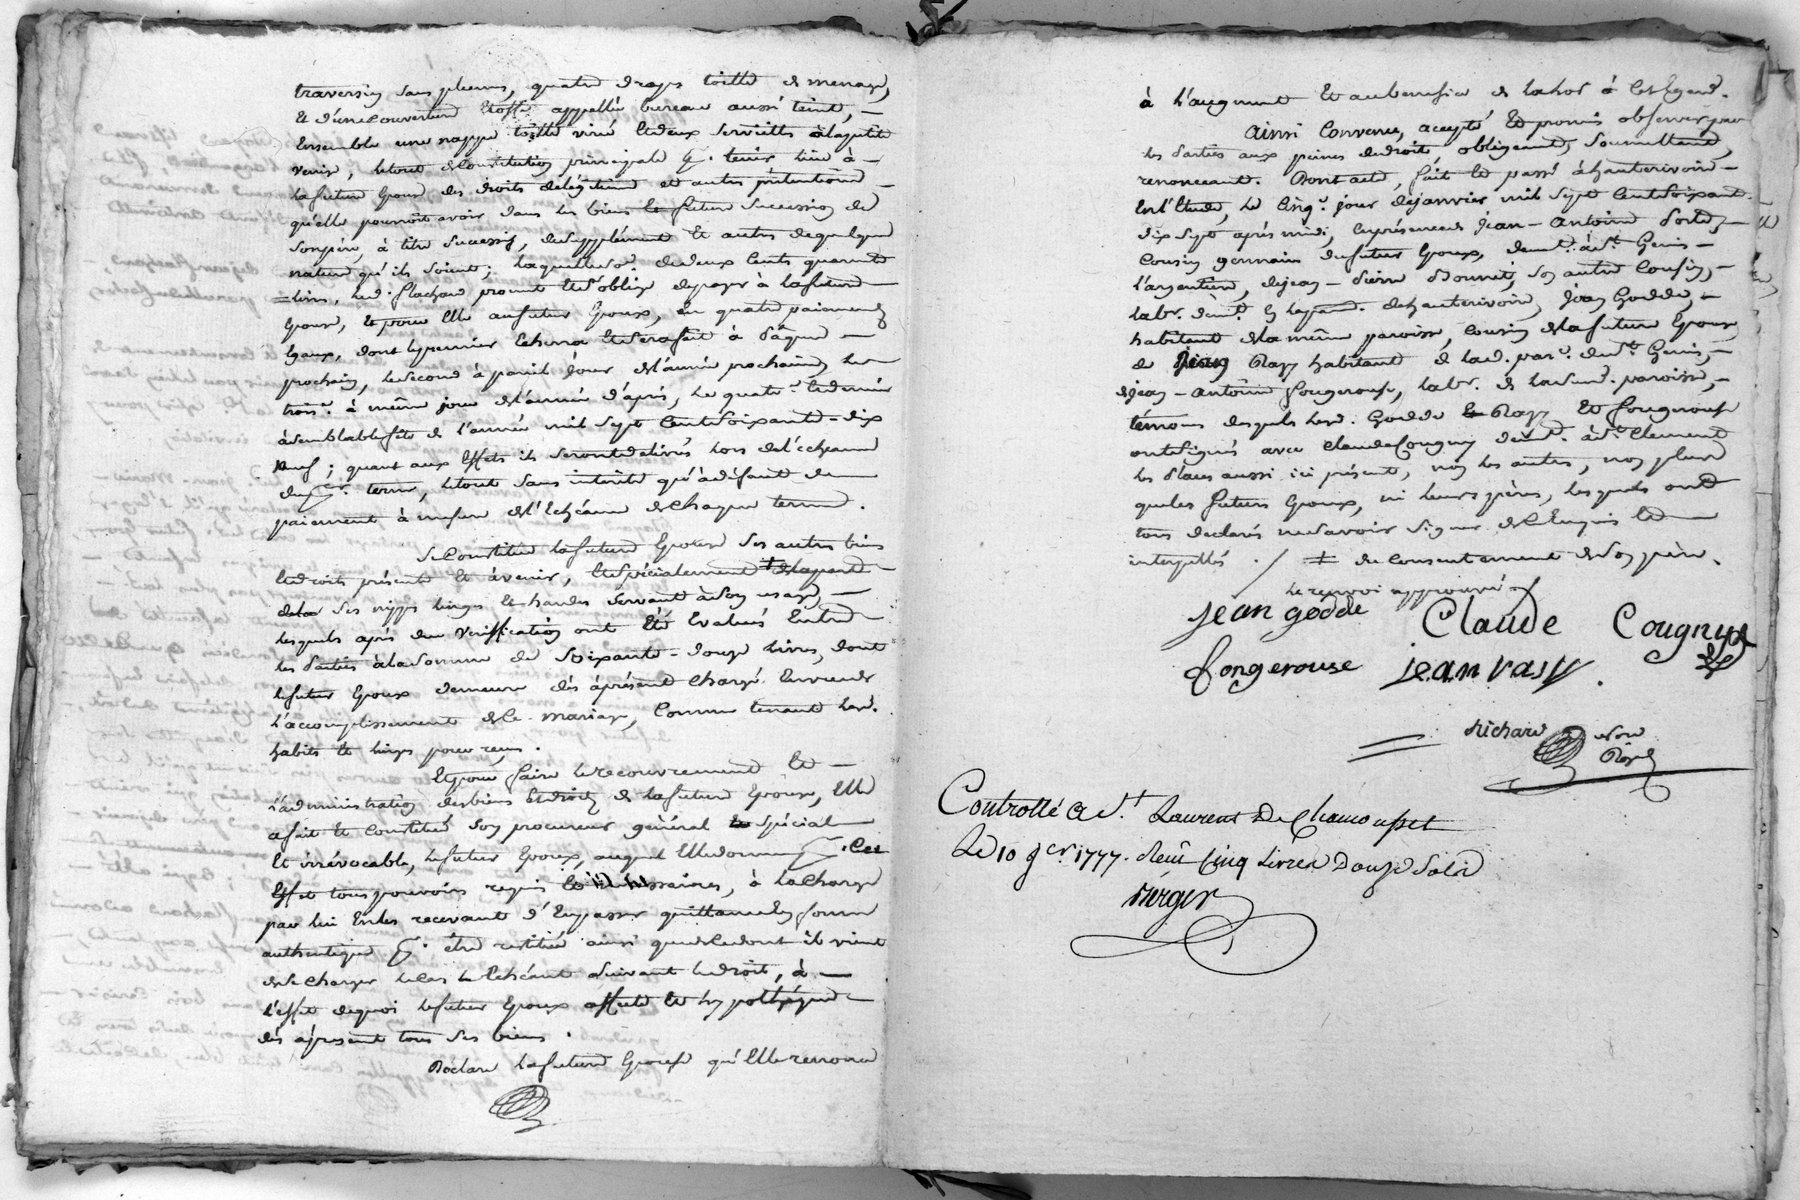 traversin sans plume, quatre draps toille de menage,
Et d'une couverture Etoffe appellée bureau aussi teint,
Ensemble une nappe toille virée et deux serviettes à la petite
venise, le tout de constitution principale pr. tenir lieu à
la future Epouse des droits de légitime et autres prétentions
qu'elle pourroit avoir dans les biens et future succession de
son père, à titre successif, de supplément Et autres de quelque
nature qu'ils soient; laquelle so.e de deux Cents quarante
livres, led. flachard promet Et s'oblige de payer à la future
Epouse, Et pour Elle au futur Epoux, en quatre paiements
Egaux, dont le premier Echerra Et sera fait à Pâque
prochain, le second à pareil jour de l'année prochaine, le
trois.e à même jour de l'année d'après, le quatr.e et dernier
à semblable fête de l'année mil sept Cent soixante-dix
neuf; quant aux Effets ils seront delivrés lors de l'echeance
du p.er terme, le tout sans intérêts qu'à défaut de
paiement à mesure de l'Echéance de chaque terme.
Se Constitue la future Epouse ses autres biens
et droits présents Et avenir, Et spécialement ⧧
ses nippes linges et hardes servant à son usage,
lesquels après due vérification ont été Evalués Entre
les parties à la somme de soixante-douze livres, dont
le futur Epoux demeure dès àprésent chargé Envers
l'accomplissement de ce mariage, comme tenant lesd.
habits et linges pour reçus.
Et pour faire le recouvrement Et
l'administration des biens Et droits de la future Epouse, Elle
a fait Et constitué son procureur général et spécial
Et irrévocable, le futur Epoux, auquel Elle donne pr. Cet
Effet tous pouvoirs requis et nécessaires, à la charge
par lui En les recevant d'En passer quittance en forme
authentique pr. être restitué ainsi que de ce dont il vient
de se charger le Cas le Echéant suivant le droit, à
l'effet de quoi le futur Epoux affecte Et hypothèque
dès àprésent tous ses biens.
Déclare la future Epouse qu'Elle renonce
à l'augment Et au benefice de la loi à cet Egard.
Ainsi Convenu, accepté Et promis observer par
les Parties aux peines de droit obligeant, soumettant,
renonceant. Dont acte, fait Et passé à hauterivoire
En l'Etude, le Cinq.e jour de janvier mil sept Cent soixante
dix sept après midi, En présence de Jean-Antoine
Cousin germain du futur Epoux, demt. à st. Genis
l'argentiere, de jean-Pierre Bonnet, son autre Cousin,
labr. demt. En la par. de hauterivoire, jean Godde,
habitant de la même paroisse, cousin de la future Epouse
de jean Razy habitant de lad. par.e de st. Genis,
de jean-Antoine fougerouse, labr. de lad. paroisse,
témoins desquels lesd. Godde et Razy Et fougerouse
ont signés avec Claude Cougny demt. à st. Clement
les Places aussi ici présent, non les autres, non plus
que les futurs Epoux, ni leurs pères, lesquels ont
tous declarés ne savoir signer de ce Enquis Et
interpellés ./ ⧧ du consentement de son père.
le renvoi approuvé
jean godde Claude Cougny
fongerouse jean rasy
Richard nore
Royal
Controllé a St. Laurent De Chamousset
Le 10 Jer. 1777. Reçu Cinq livres Douze Sols
Berger